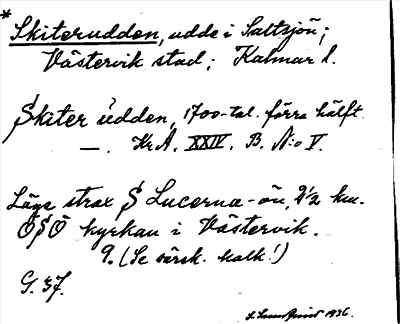 *Skiterudden, udde i Saltsjön;
Västervik stad; Kalmar l.
Skiter udden, 1700-tal. förra hälft.
— . Kr A. XXIV. B. N:o V.
Läge strax S Lucerna-ön, 9½ km.
OSO kyrkan i Västervik.
9. (Se särsk. kalk!)
G. 37.
1936.